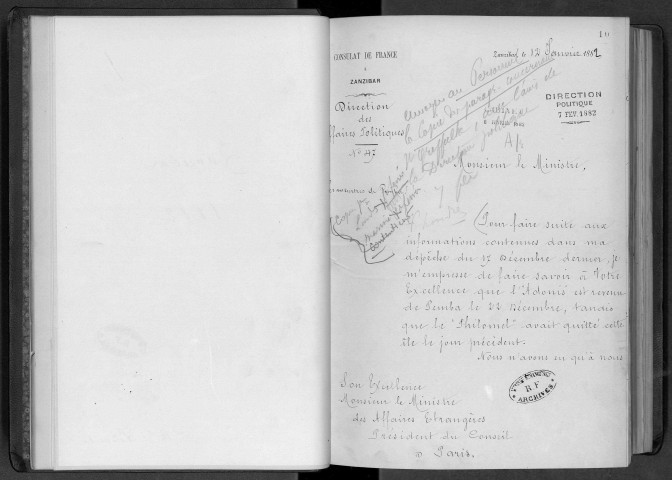 10
CONSULAT DE FRANCE
à
ZANZIBAR
Direction
des
Affaires Politiques
No 47
Zanzibar, le 12 Janvier 1882
DIRECTION
POLITIQUE
7 FEV. 1882
Envoyer au Personnel
la Copie du
la Direction politique
Monsieur le Ministre,
Pour faire suite aux
informations contenues dans ma
dépêche du 17 Décembre dernier, je
m'empresse de faire savoir à Votre
Excellence que l'Adonis est revenu
de Pemba le 22 Décembre, tandis
que le "Philomel" avait quitté cette
île le jour précédent.
Nous n'avons eu qu'à nous
Son Excellence
Monsieur le Ministre
des Affaires Etrangères
Président du Conseil
à Paris.
R F
ARCHIVES